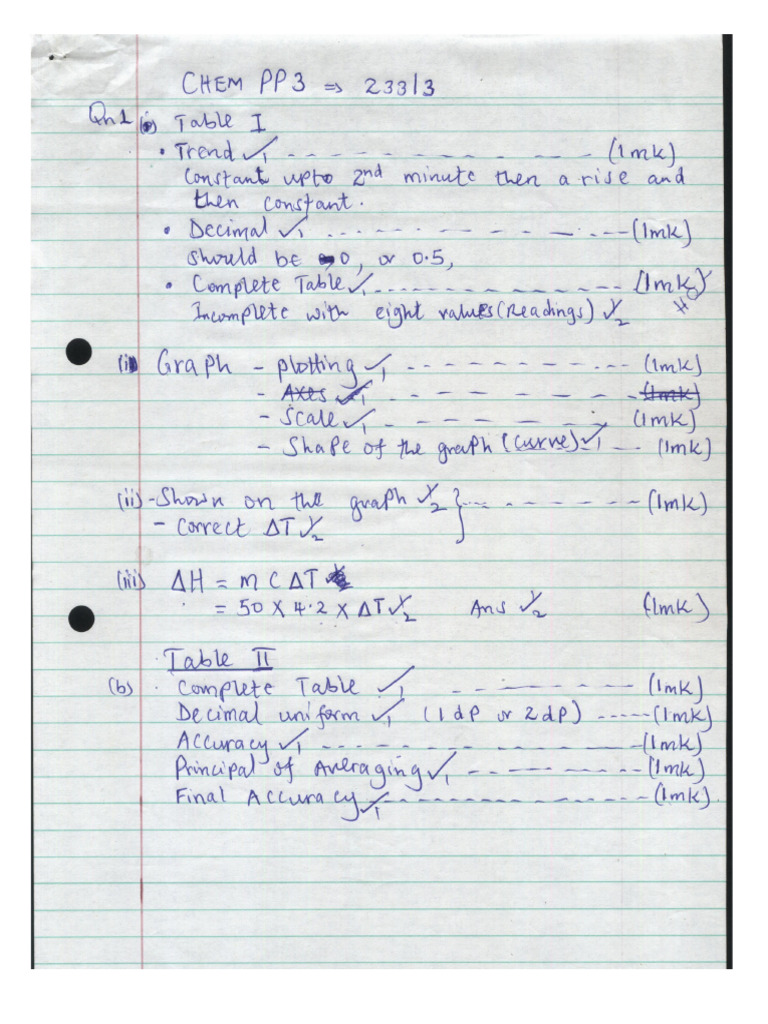 CHEM PP3 ⇒ 233/3
Qn1 (i) Table I
• Trend ✓1 ------------ (1mk)
Constant upto 2nd minute then a rise and
then constant.
• Decimal ✓1 ------------ (1mk)
should be 0, or 0.5,
• Complete Table ✓1 ------------ (1mk)
Incomplete with eight values (Readings) ✓½
(i) Graph - plotting ✓1 ------------ (1mk)
- Axes ✓1 ------------ (1mk)
- Scale ✓1 ------------ (1mk)
- Shape of the graph (curve) ✓1 --- (1mk)
(ii) - Shown on the graph ✓½ } ------------ (1mk)
- Correct ΔT ✓½
(iii) ΔH = m C ΔT
= 50 X 4.2 X ΔT ✓½ Ans ✓½ (1mk)
Table II
(b) Complete Table ✓1 ------------ (1mk)
Decimal uniform ✓1 (1 dp or 2 dp) ----- (1mk)
Accuracy ✓1 ------------ (1mk)
Principal of Averaging ✓1 ------------ (1mk)
Final Accuracy ✓1 ------------ (1mk)